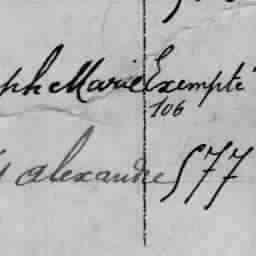 ph Marie Exempté
106
alexandre 577